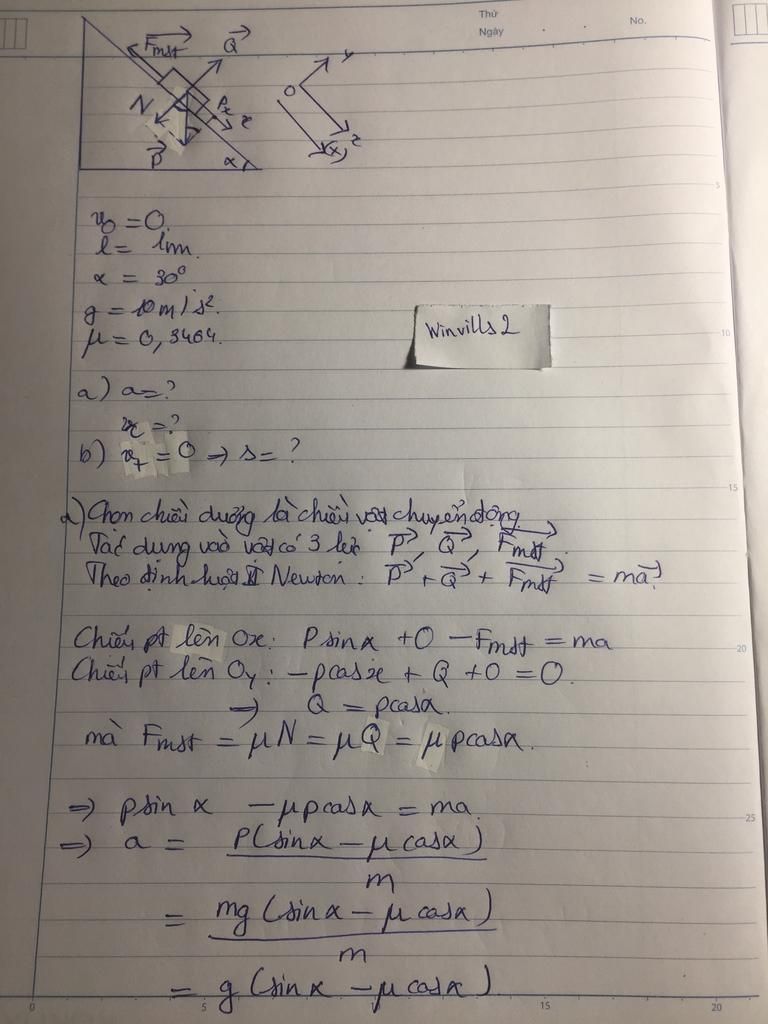 Thứ
Ngày
No.
Fmst
Q
y
N
O
Px
x
P
α
(x)
x
v₀ = 0.
l = 1m.
α = 30°
g = 10 m/s².
μ = 0,3464.
Winvills 2
a) a = ?
b) = 0 ⇒ s = ?
a) Chọn chiều dương là chiều vật chuyển động
Tác dụng vào vật có 3 lực P, Q, Fmst.
Theo định luật II Newton: P + Q + Fmst = ma
Chiếu pt lên Ox: Psinα + 0 - Fmst = ma
Chiếu pt lên Oy: -pcosα + Q + 0 = 0.
⇒ Q = pcosα.
mà Fmst = μN = μQ = μpcosα.
⇒ psinα - μpcosα = ma.
⇒ a = P(sinα - μcosα)
m
= mg(sinα - μcosα)
m
= g(sinα - μcosα)
5
10
15
20
25
0
5
15
20